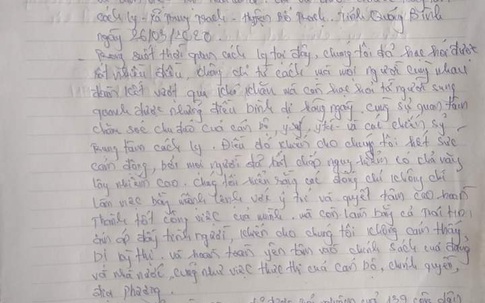 cách ly - xã Trung Trạch - huyện Bố Trạch - Tỉnh Quảng Bình
ngày 26/03/2020.
Trong suốt thời gian cách ly tại đây, chúng tôi đã học hỏi được
rất nhiều điều, không chỉ từ cách mà mọi người cùng nhau
đoàn kết vượt qua khó khăn mà còn học hỏi từ người xung
quanh được những điều bình dị hàng ngày, cùng sự quan tâm
chăm sóc chu đáo của cán bộ, y sỹ, y tế và các chiến sỹ
trung tâm cách ly. Điều đó khiến cho chúng tôi hết sức
cảm động, bởi mọi người đã bất chấp nguy hiểm có
lây nhiễm cao. Chúng tôi hiểu rằng các đồng chí không chỉ
làm việc bằng mệnh lệnh với ý trí và quyết tâm cao hoàn
thành tốt công việc của mình. mà còn làm bằng cả trái tim
ấm áp đầy tình người, khiến cho chúng tôi không cảm thấy
bị kỳ thị. và hoàn toàn yên tâm vào chính sách của đảng
và nhà nước, cũng như việc thực thi của cán bộ, chính quyền,
địa phương.